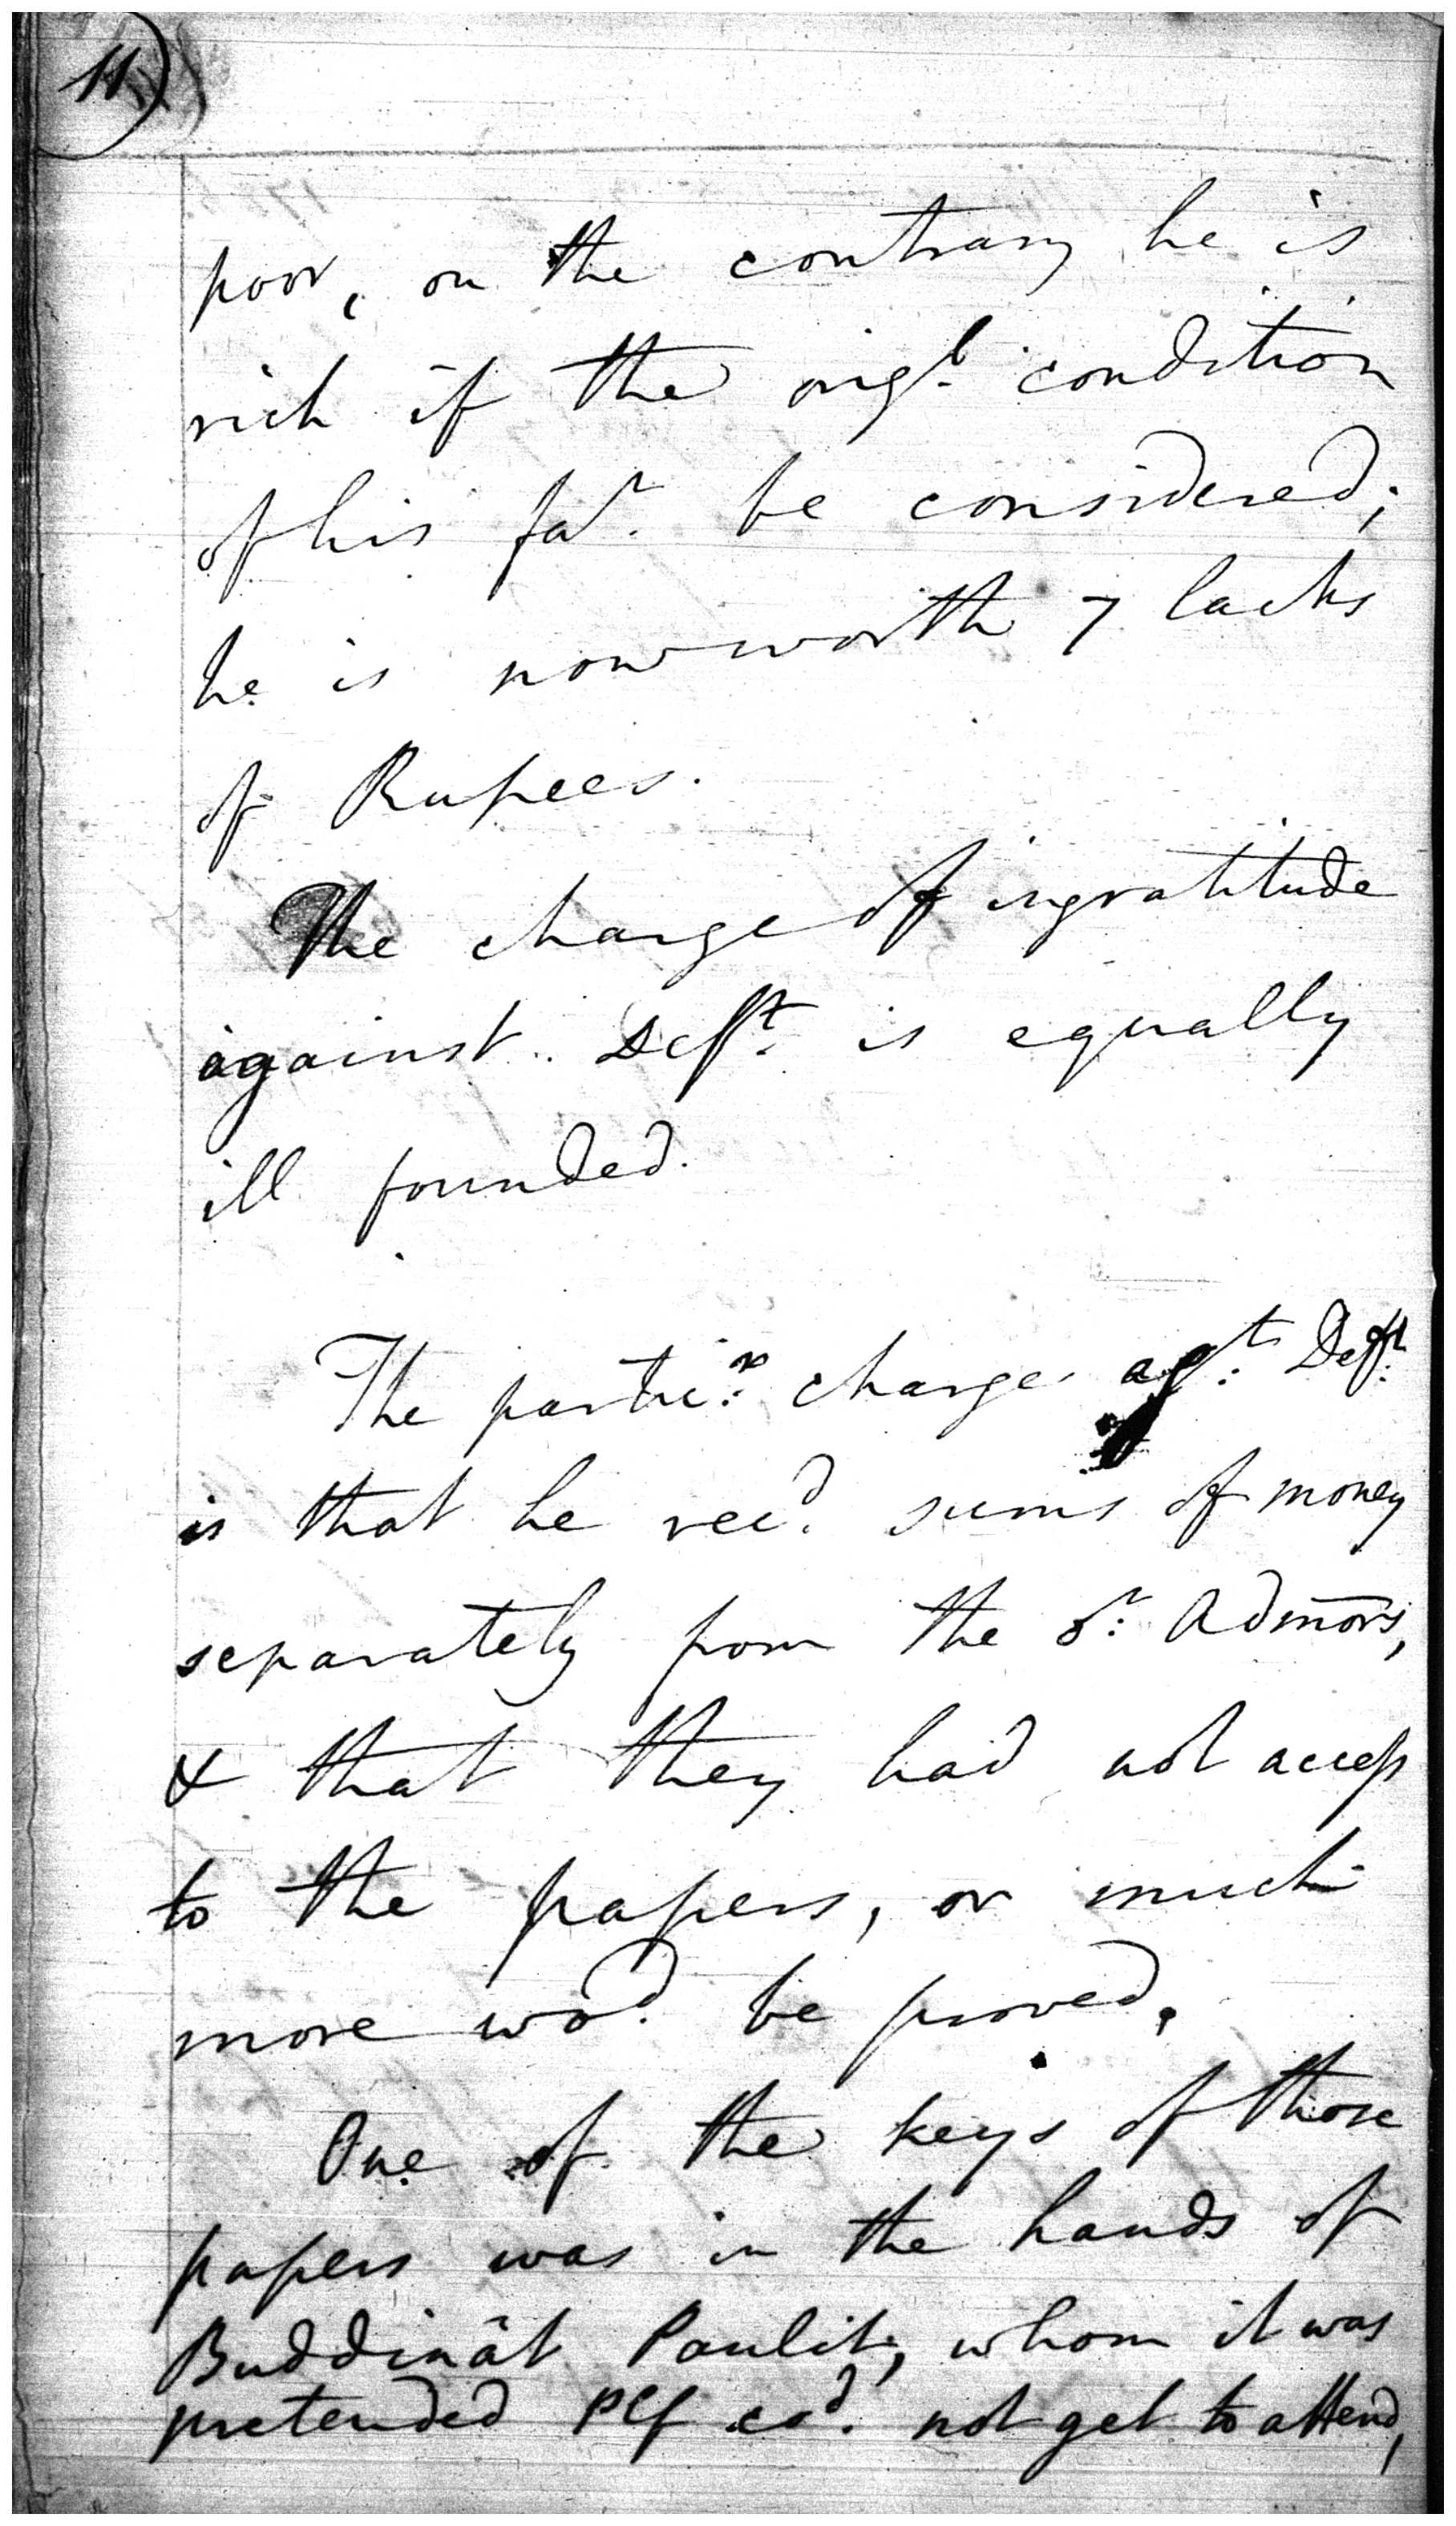 11)
poor, on the contrary he is
rich if the orig.l condition
of his fa.r be considered;
he is now worth 7 lacks
of Rupees.
The charge of ingratitude
against Deft. is equally
ill founded.
The partic.r charge ag.t Deft.
is that he rec.d sums of money
separately from the o.r Admors,
& that they had not access
to the papers, or much
more wo.d be proved.
One of the keys of those
papers was in the hands of
Buddinât Paulit, whom it was
pretended Plf co.d not get to attend,